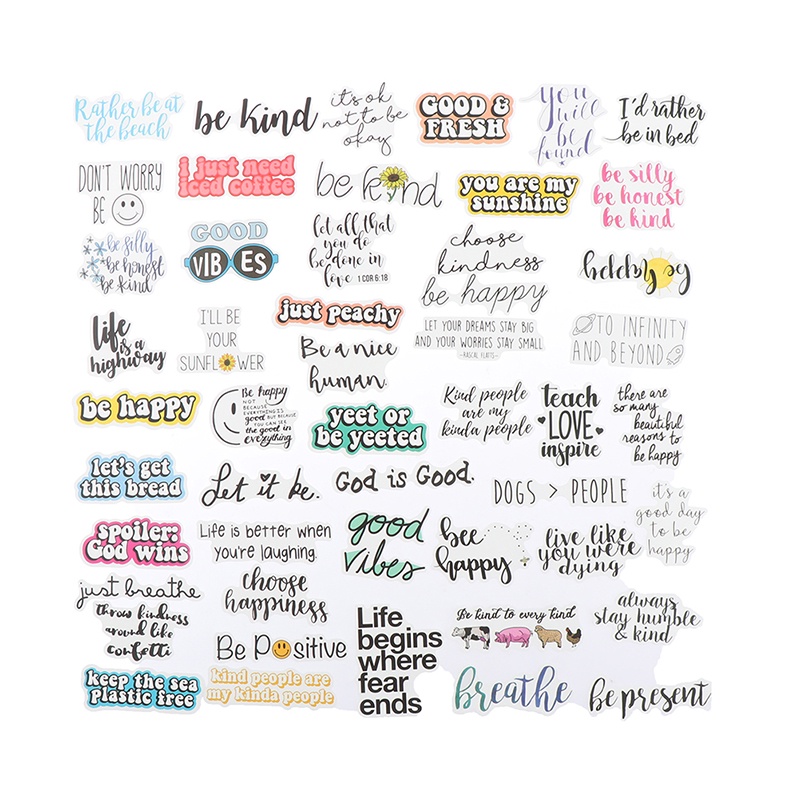 Rather be at
the beach
be kind
it's ok
not to be
okay
GOOD &
FRESH
you
will
be
found
I'd rather
be in bed
DON'T WORRY
BE
i just need
iced coffee
be kind
you are my
sunshine
be silly
be honest
be kind
be silly
be honest
be kind
GOOD
VIBES
let all that
you do
be done in
love 1 COR 6:18
choose
kindness
be happy
be happy
life
is a
highway
I'LL BE
YOUR
SUNFLOWER
just peachy
Be a nice
human.
LET YOUR DREAMS STAY BIG
AND YOUR WORRIES STAY SMALL
-RASCAL FLATTS-
TO INFINITY
AND BEYOND
be happy
Be happy
NOT
BECAUSE
EVERYTHING IS
GOOD BUT BECAUSE
YOU CAN SEE
the good in
everything.
yeet or
be yeeted
Kind people
are my
kinda people
teach
LOVE
inspire
there are
so many
beautiful
reasons to
be happy
let's get
this bread
Let it be.
God is Good.
DOGS > PEOPLE
it's a
good day
to be
happy
spoiler:
God wins
Life is better when
you're laughing.
good
vibes
bee
happy
live like
you were
dying
just breathe
throw kindness
around like
confetti
choose
happiness
Be Positive
Life
begins
where
fear
ends
Be kind to every kind
always
stay humble
& kind
keep the sea
plastic free
kind people are
my kinda people
breathe
be present